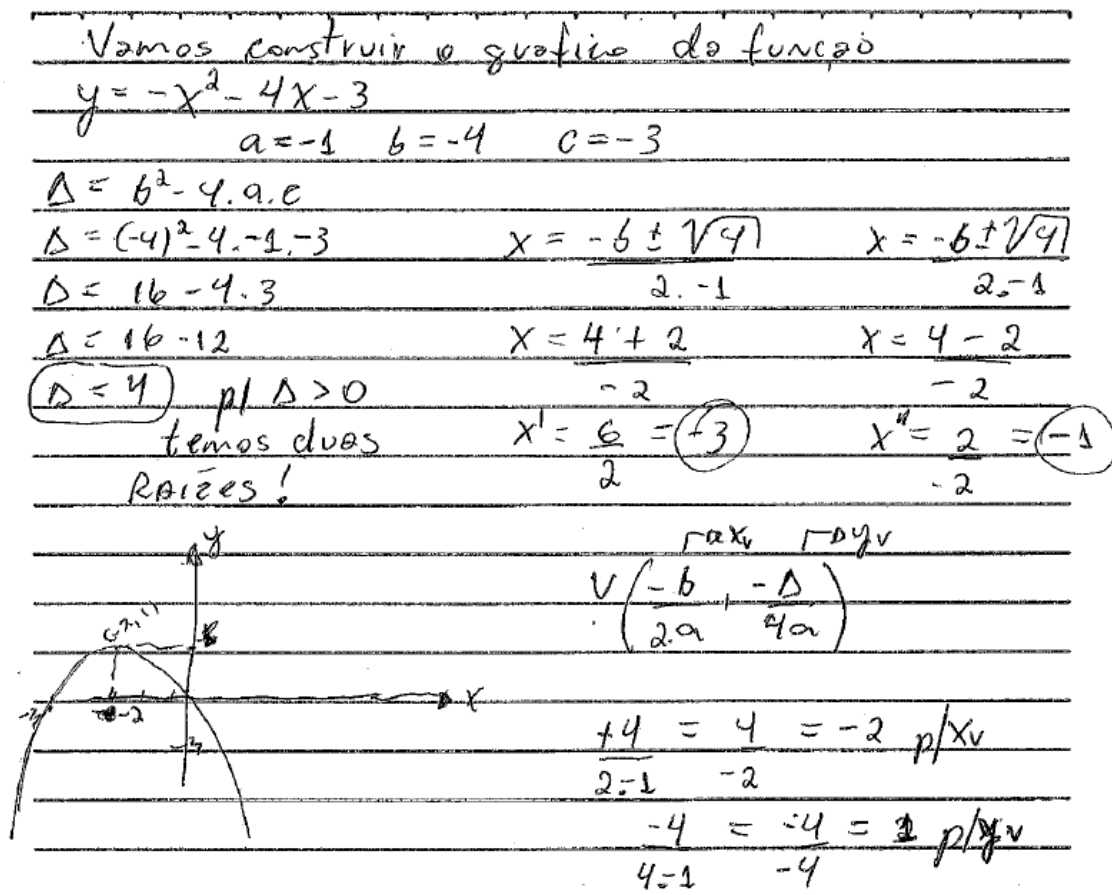 Vamos construir o grafico da função
y = -x² - 4x - 3
a = -1 b = -4 c = -3
Δ = b² - 4.a.c
Δ = (-4)² - 4.-1.-3
Δ = 16 - 4.3
Δ = 16 - 12
Δ = 4 p/ Δ > 0
temos duas
RAÍZES!
x = -b ± √4 / 2.-1
x = 4 + 2 / -2
x' = 6 / 2 = -3
x = -b ± √4 / 2.-1
x = 4 - 2 / -2
x" = 2 / -2 = -1
y
x
-2
-3
xv yv
V (-b / 2.a , -Δ / 4a)
+4 / 2.-1 = 4 / -2 = -2 p/ xv
-4 / 4.-1 = -4 / -4 = 1 p/ yv